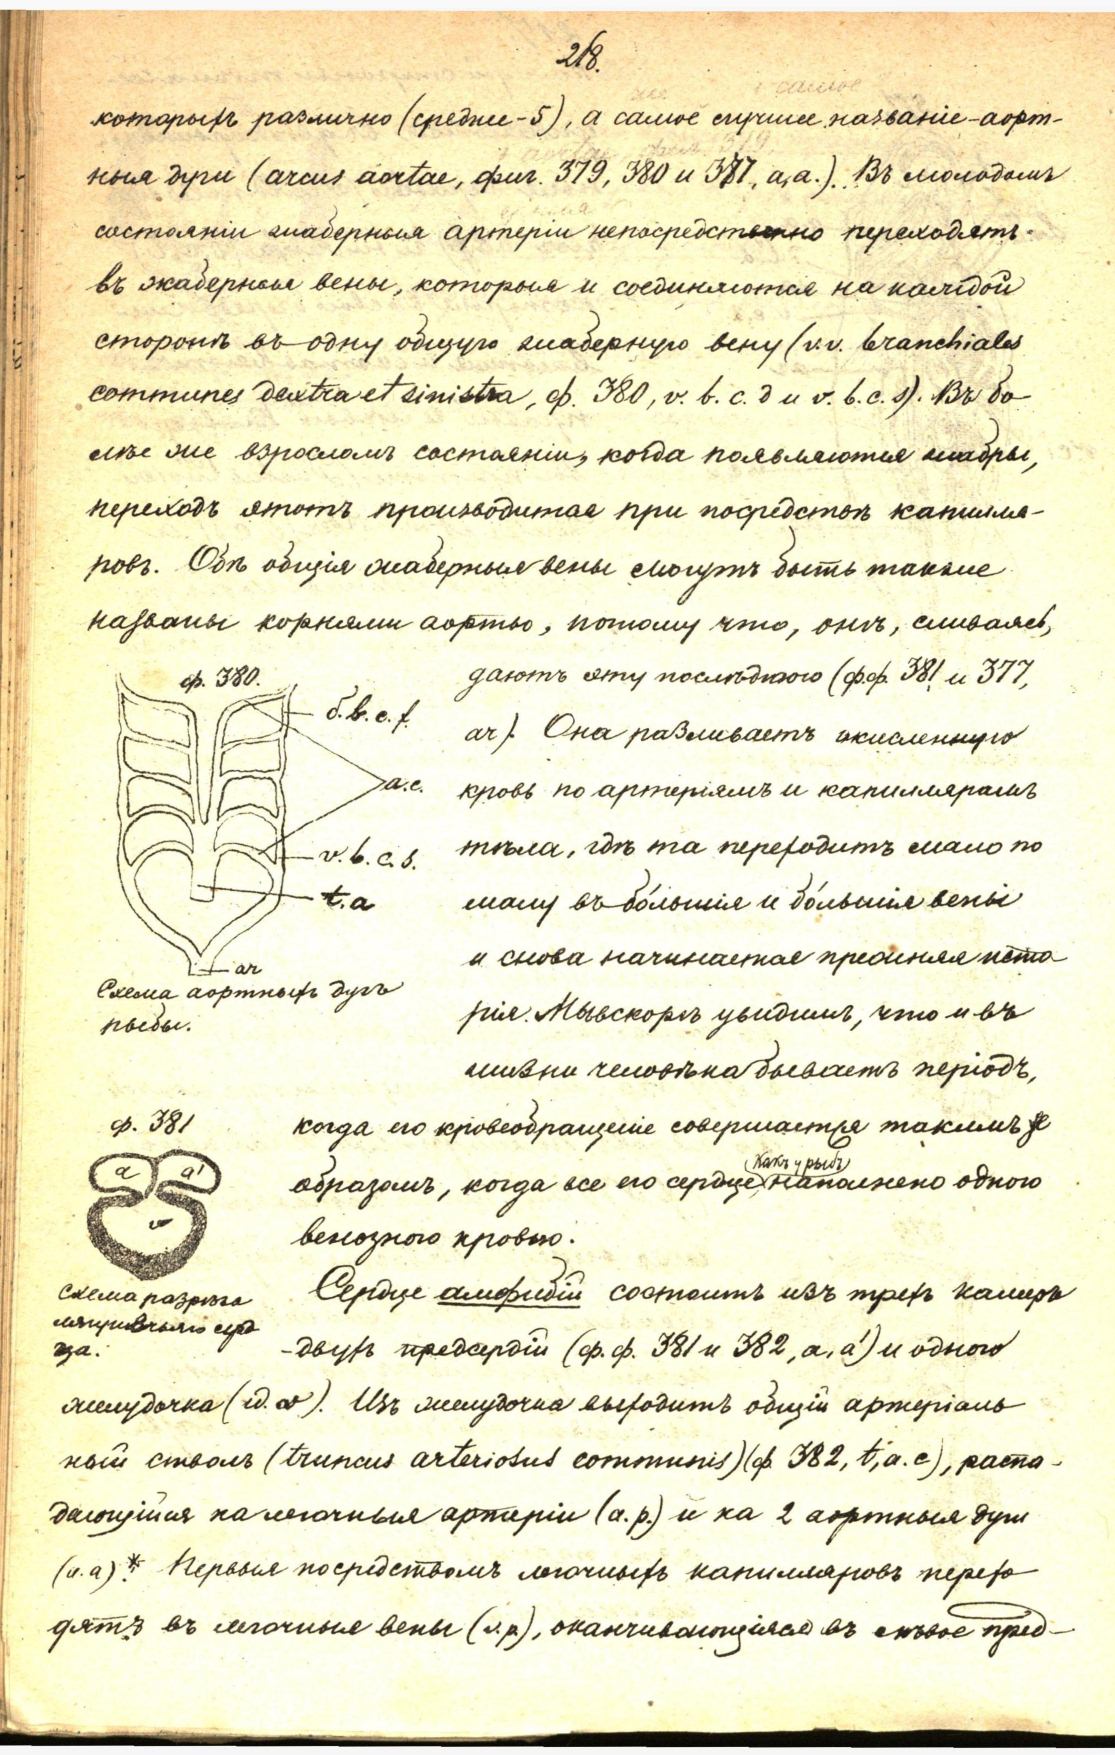 218.
которыхъ различно (среднее-5), а самое лучшее названіе-аорт-
ныя дуги (arcus aortae, фиг. 379, 380 и 377, a, a.). Въ молодомъ
состояніи жаберныя артеріи непосредственно переходятъ
въ жаберныя вены, которыя и соединяются на каждой
сторонѣ въ одну общую жаберную вену (v.v. branchiales
communes dextra et sinistra, ф. 380, v. b. c. d и v. b. c. s). Въ бо
лѣе же взросломъ состояніи, когда появляются жабры,
переходъ этотъ производится при посредствѣ капилля-
ровъ. Обѣ общія жаберныя вены могутъ быть также
названы корнями аорты, потому что, онѣ, сливаясь,
дають эту послѣднюю (ф.ф. 381 и 377,
ач). Она разливаетъ окисленную
кровь по артеріямъ и капиллярамъ
тѣла, гдѣ та переходитъ мало по
малу въ бо́льшія и бо́льшія вены
и снова начинается прежняя исто
рія. Мы вскорѣ увидимъ, что и въ
жизни человѣка бываетъ періодъ,
ф. 380.
б. в. c. f.
a. c.
v. b. c. s.
t. a
ач
Схема аортныхъ дугъ
рыбы.
когда его кровеобращеніе совершается такимъ же
образомъ, когда все его сердце (какъ у рыбъ) наполнено одною
венозною кровью.
ф. 381
a a'
v
Схема разрѣза
лягушачьяго серд
ца.
Сердце амфибій состоитъ изъ трехъ камеръ
-двухъ предсердій (ф.ф. 381 и 382, a, a') и одного
желудочка (id. v). Изъ желудочка выходитъ общій артеріаль
ный стволъ (truncus arteriosus communis) (ф 382, t, a. c), распа-
дающійся на легочныя артеріи (a. p.) и на 2 аортныя дуги
(a. a)* Первыя посредствомъ легочныхъ капилляровъ перехо
дятъ въ легочныя вены (v. p), оканчивающіяся въ лѣвое пред-